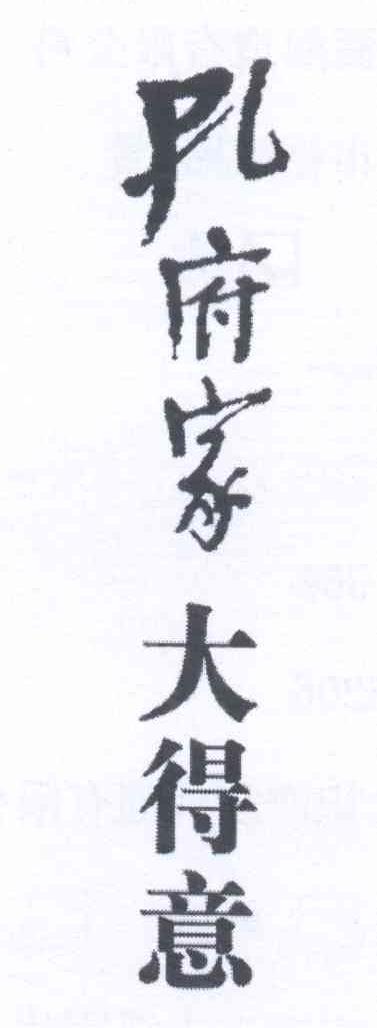 孔府家大得意